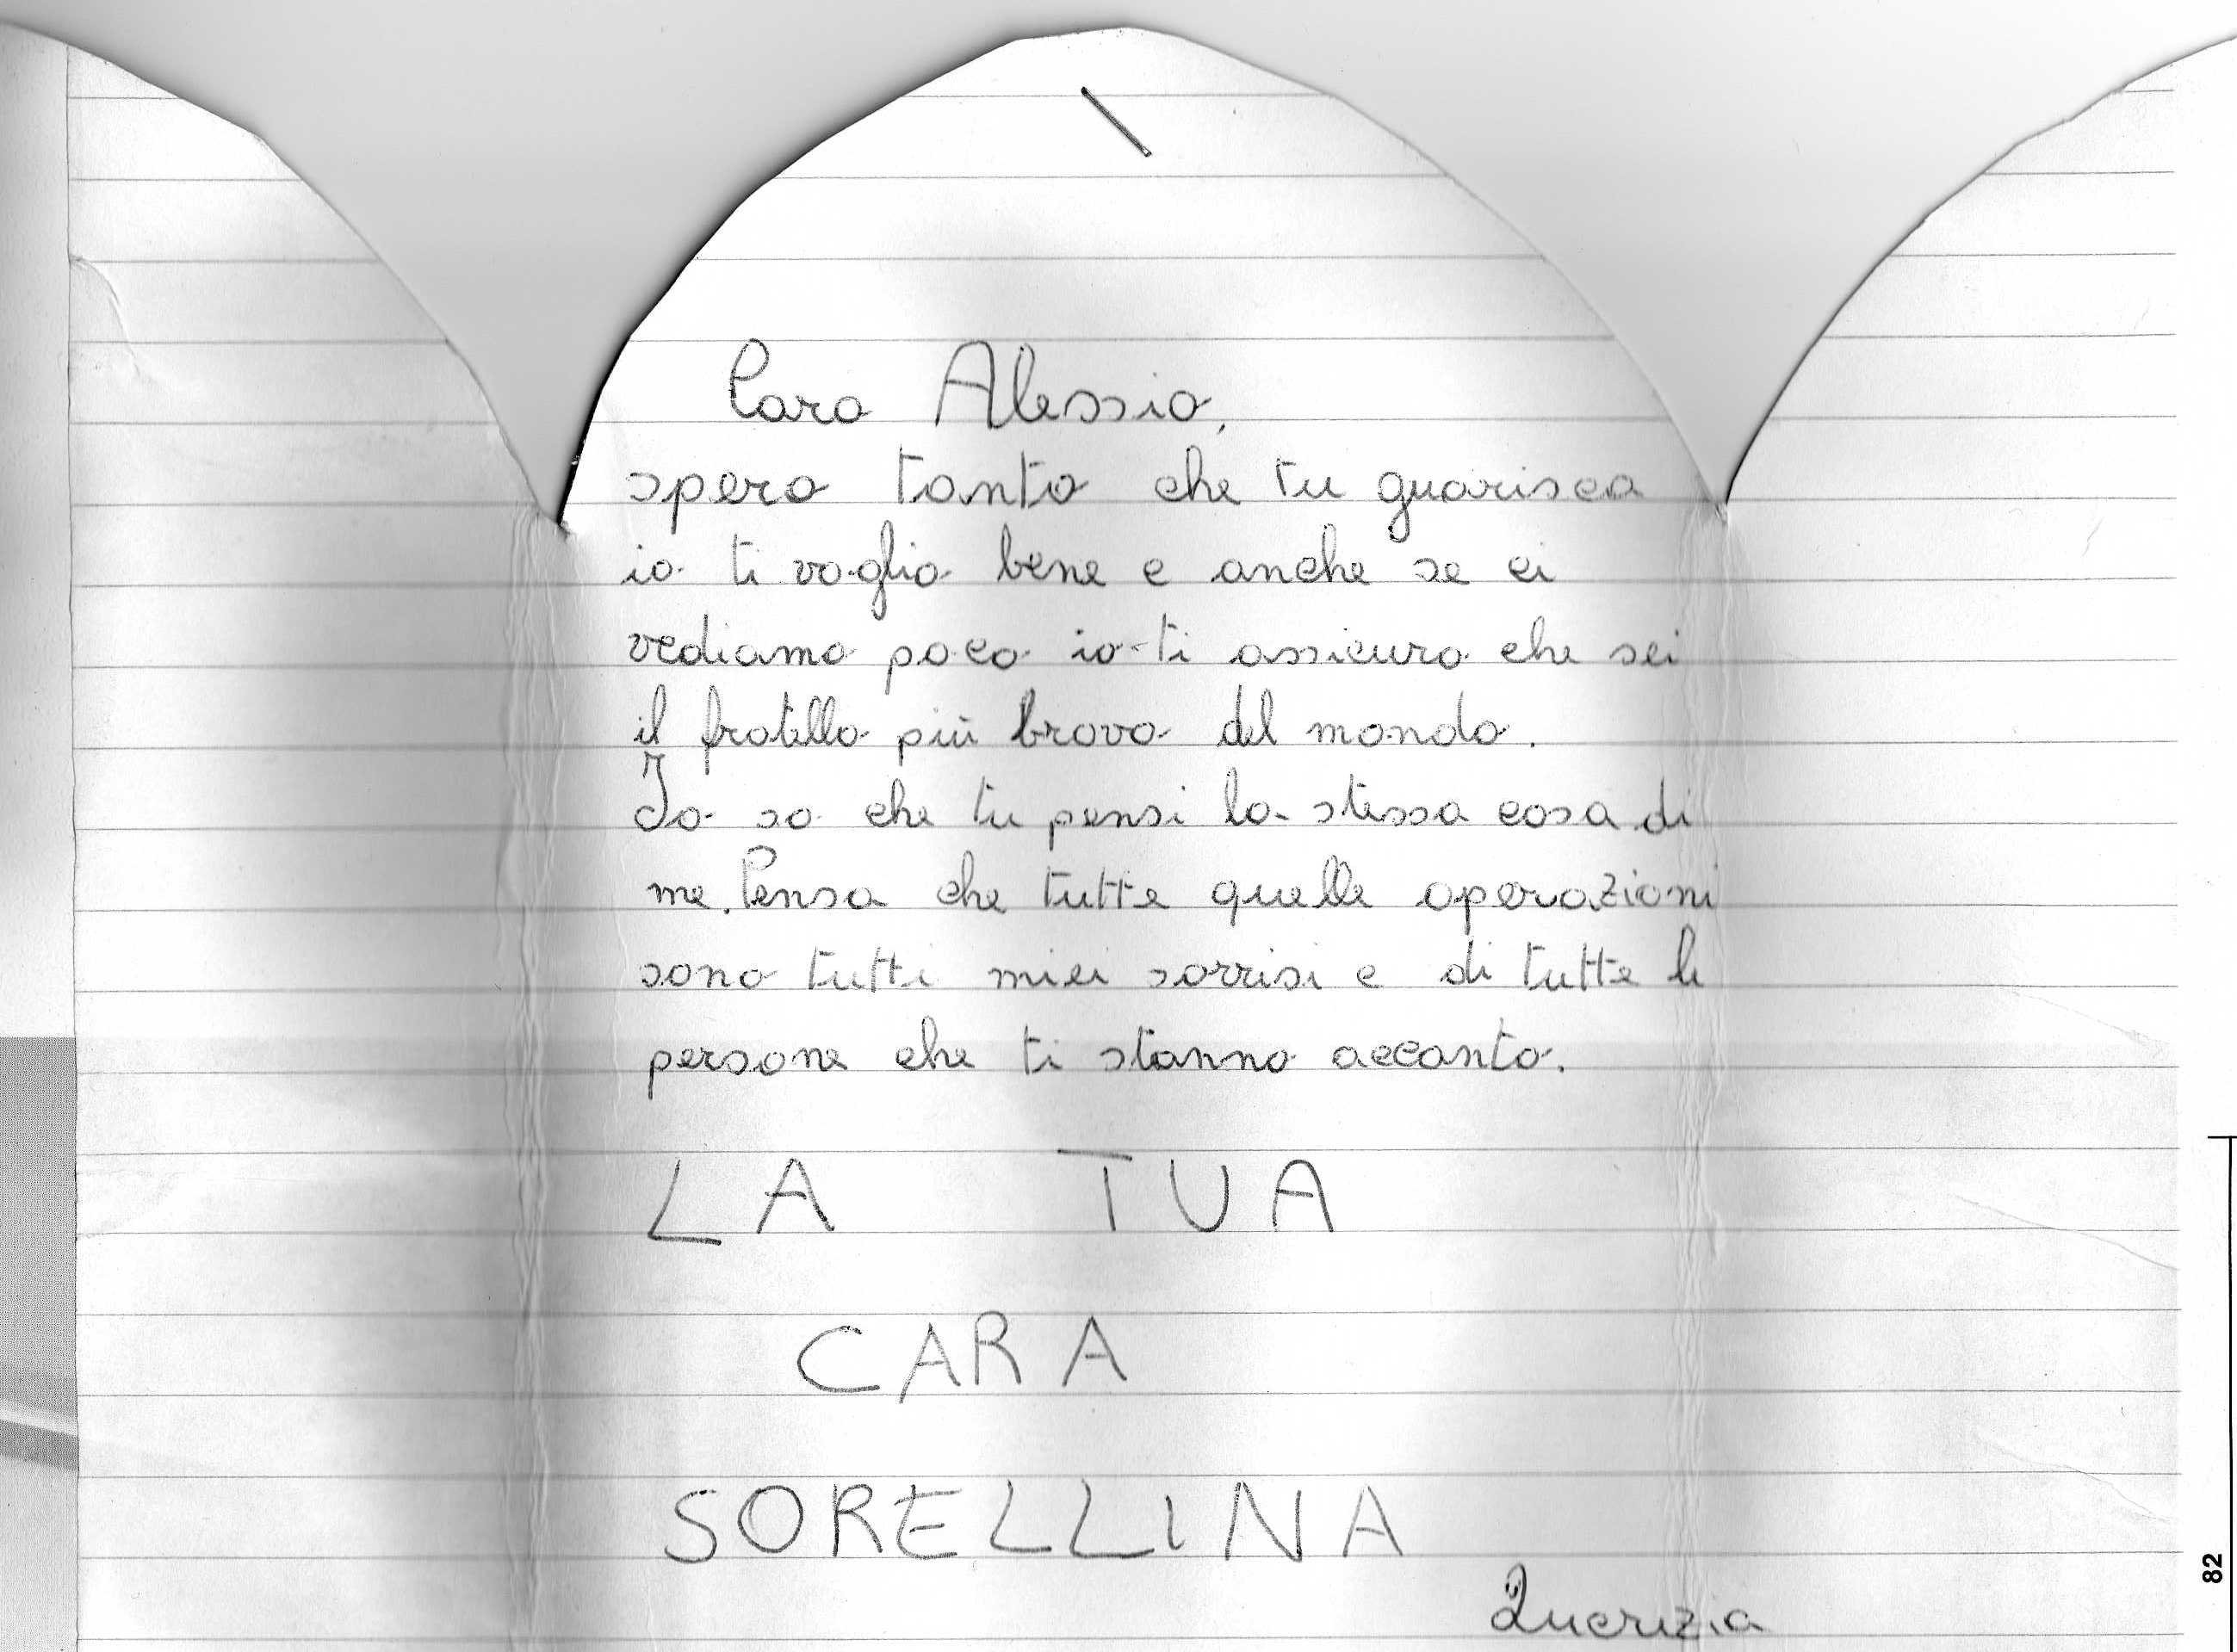 Caro Alessio,
spero tanto che tu guarisca
io ti voglio bene e anche se ci
vediamo poco io ti assicuro che sei
il fratello più bravo del mondo.
Io so che tu pensi la stessa cosa di
me. Pensa che tutte quelle operazioni
sono tutti miei sorrisi e di tutte le
persone che ti stanno accanto.
LA TUA
CARA
SORELLINA
Lucrezia
82